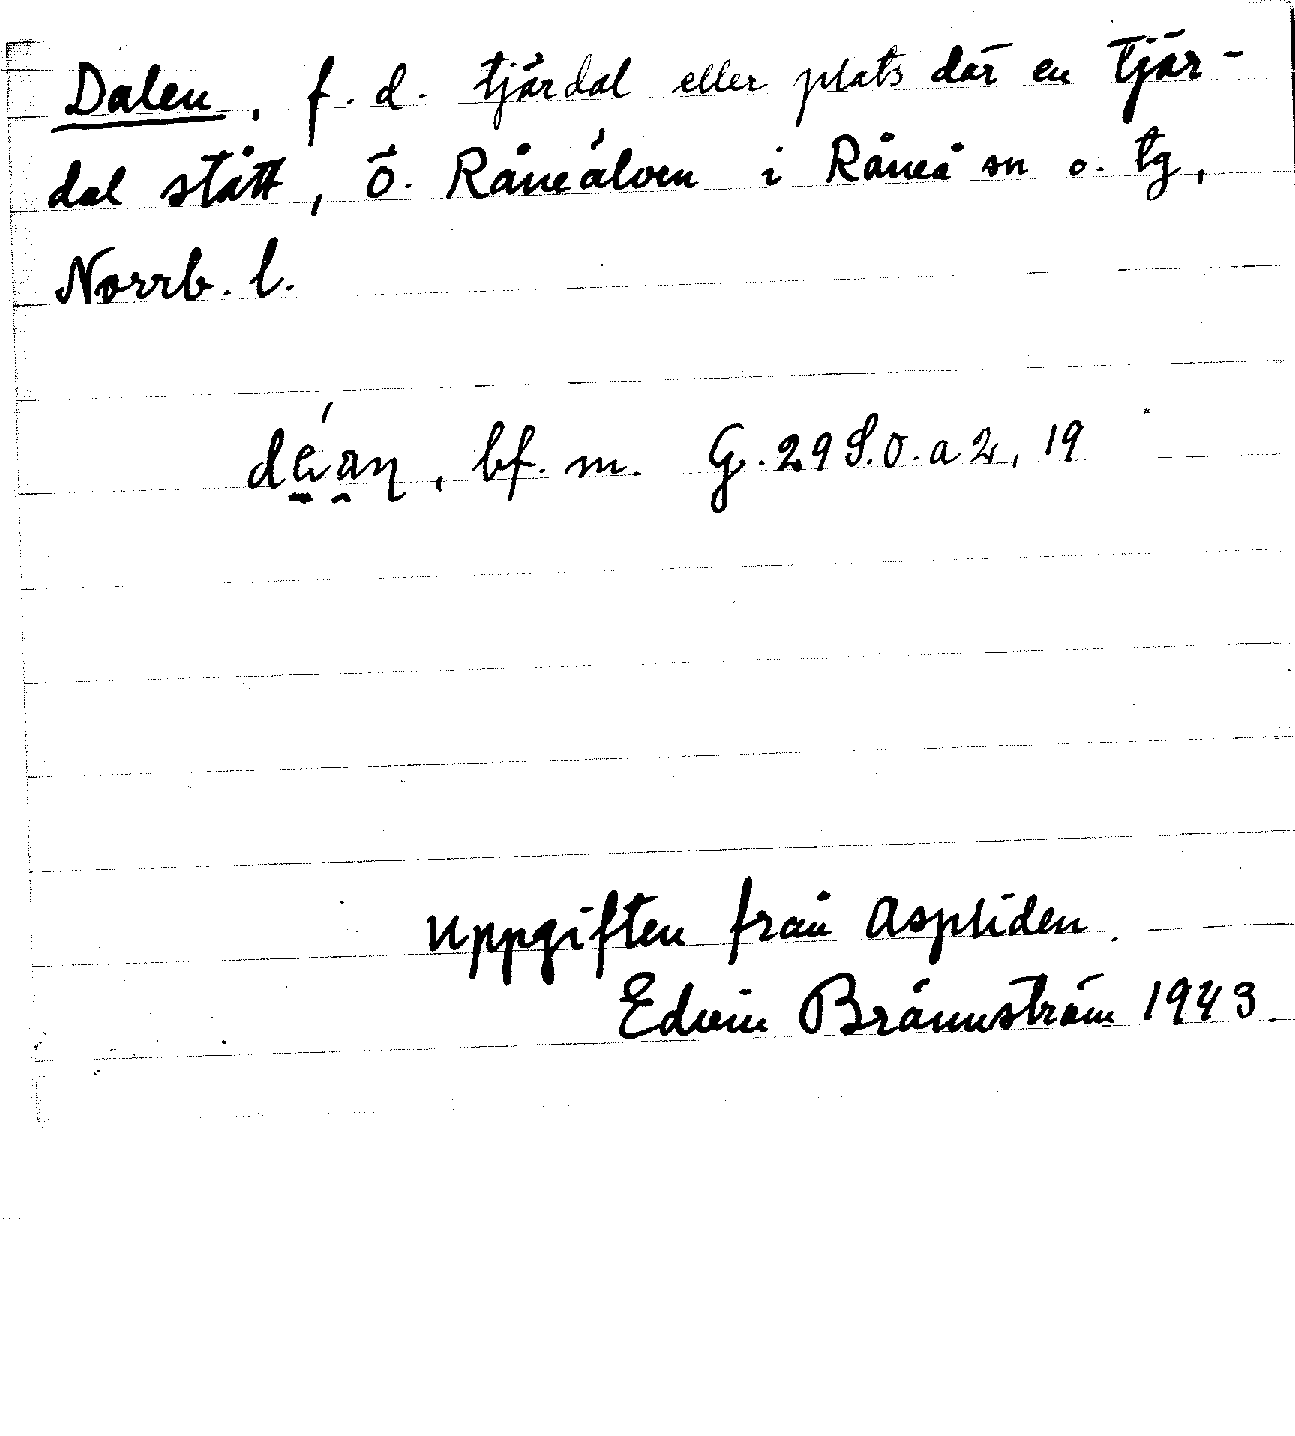 Dalen, f. d. tjärdal eller plats där en tjär-
dal stått, ö. Råneälven i Råneå sn o. tg,
Norrb. l.
bf. m. G. 29 S.O. a 2, 19
Uppgiften från Aspliden.
Edvin Brännström 1943.